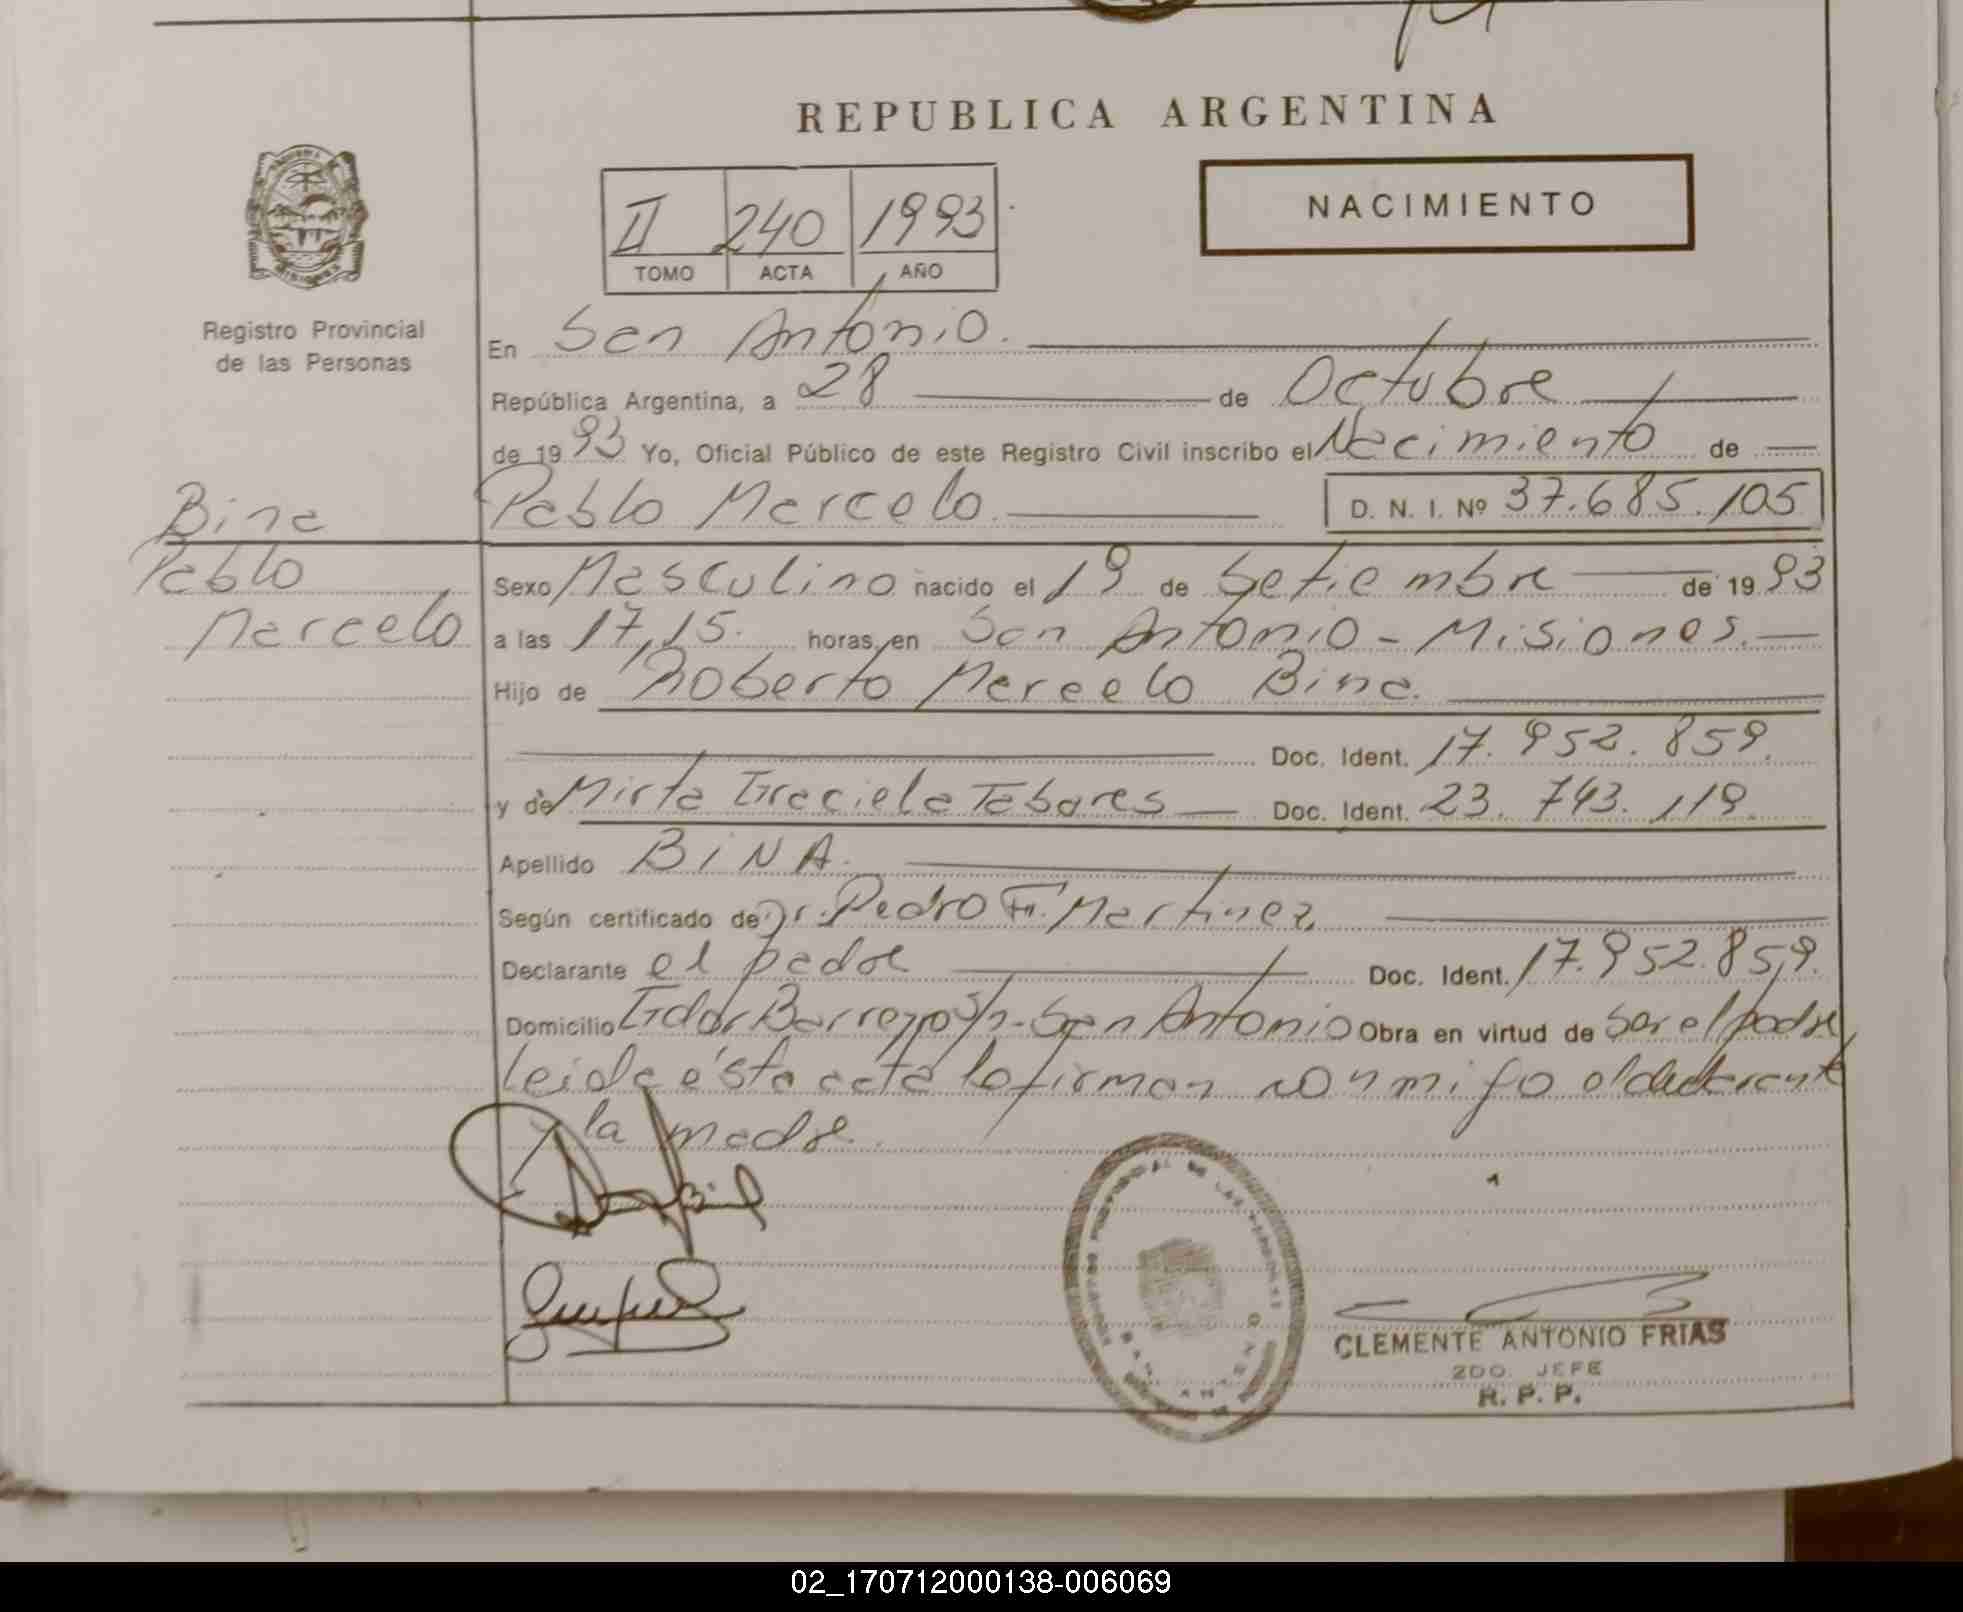 REPUBLICA ARGENTINA
NACIMIENTO
II 240 1993
TOMO ACTA AÑO
Registro Provincial
de las Personas
En San Antonio.
República Argentina, a 28 de Octubre
de 1993 Yo, Oficial Público de este Registro Civil inscribo el Nacimiento de
Bina
Pablo
Marcelo
Pablo Marcelo. D. N. I. Nº 37.685.105
Sexo Masculino nacido el 19 de Setiembre de 1993
a las 17,15. horas, en San Antonio - Misiones.
Hijo de Roberto Marcelo Bina.
Doc. Ident. 17.952.859.
y de Mirta Graciela Tabares Doc. Ident. 23.743.119.
Apellido BINA.
Según certificado de Dr. Pedro F. Martinez,
Declarante el padre Doc. Ident. 17.952.859.
Domicilio Barreyro S/n - San Antonio Obra en virtud de ser el padre
leida ésta acta lo firman conmigo el declarante
y la madre.
CLEMENTE ANTONIO FRIAS
2DO. JEFE
R. P. P.
02_170712000138-006069